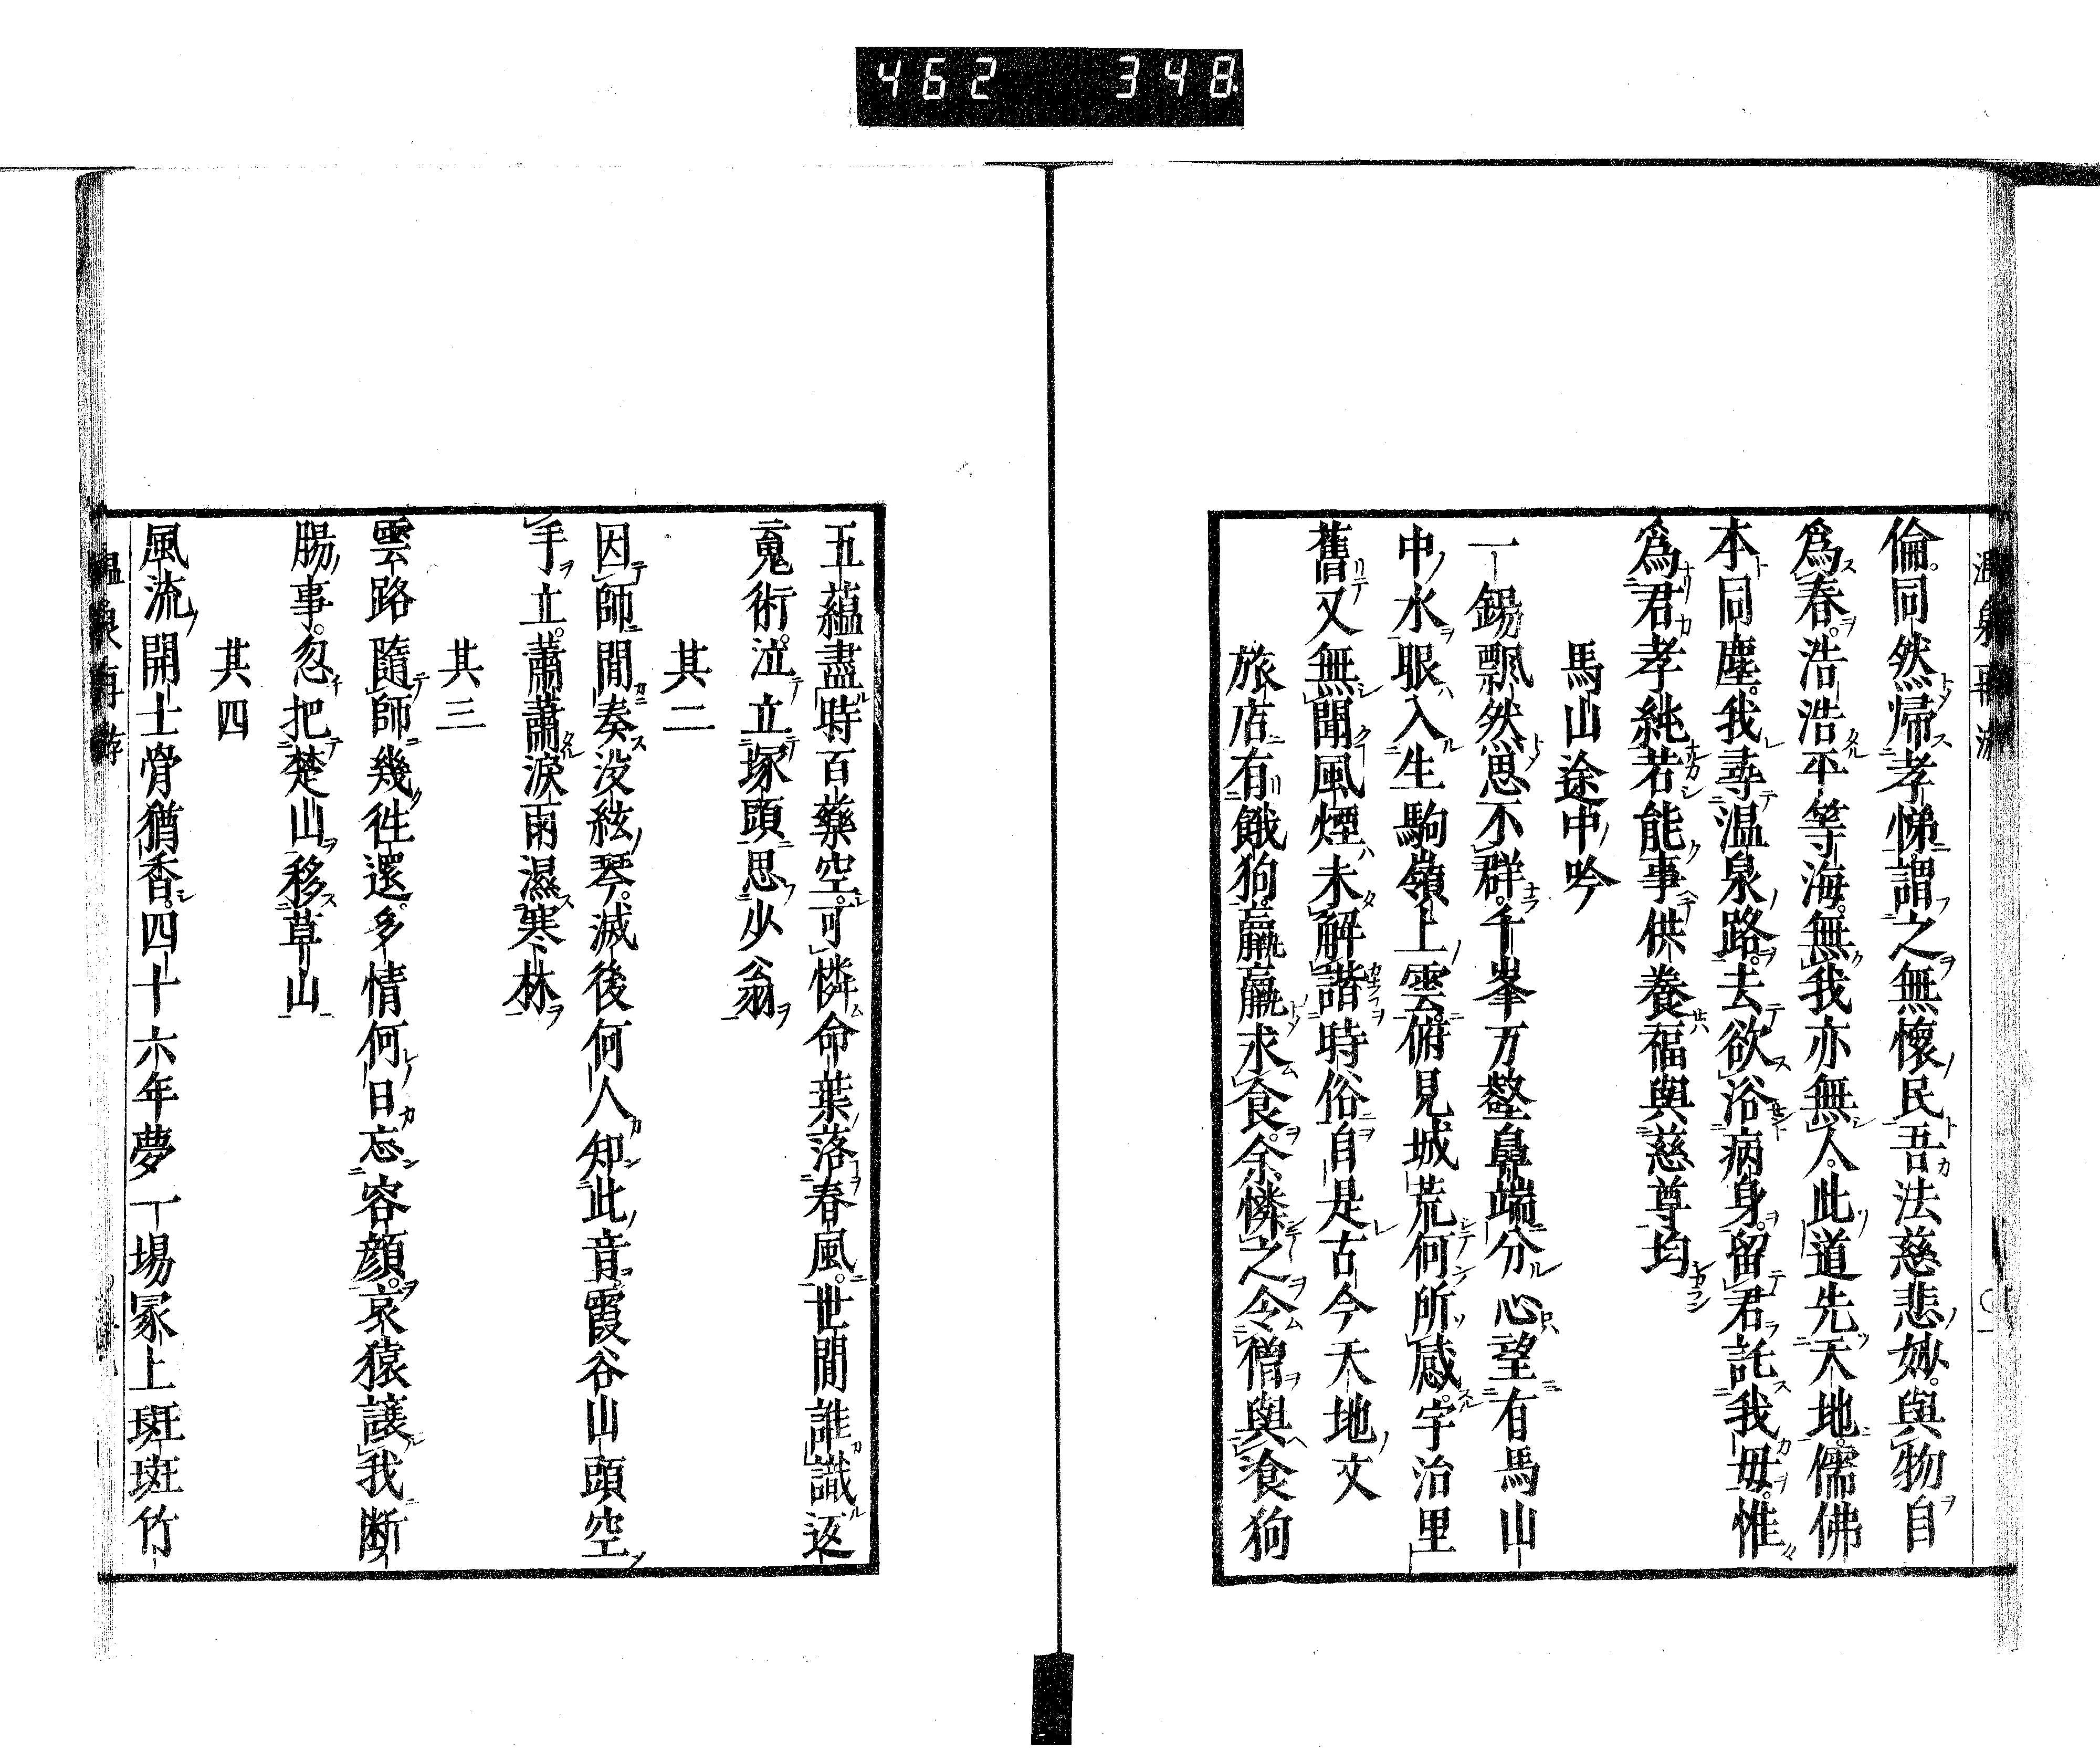 462 348
倫。同然帰孝悌。謂之無懷民。吾法慈悲妙。與物自
爲春。浩浩平等海。無我亦無人。此道先天地。儒佛
本同塵。我尋温泉路。去欲浴病身。留君託我母。惟
爲君孝純。若能事供養。福與慈尊均
馬山途中吟
一錫飄然思不群。千峯万壑鼻端分。心望有馬山
中水。眼入生駒嶺上雲。俯見城荒何所感。宇治里
舊又無聞。風煙未解諧時俗。自是古今天地文
旅店有餓狗。羸羸求食。余憐之令僧與飡狗
五蘊盡時百藥空。可憐命葉落春風。世間誰識返
䰟術。泣立塚頭思少翁
其二
因師間奏没絃琴。滅後何人知此音。霞谷山頭空
手立。蕭蕭淚雨濕寒林
其三
雲路隨師幾徃還。多情何日忘容顔。哀猿讓我断
腸事。忽把楚山移草山
其四
風流開士骨猶香。四十六年夢一場冢上斑斑竹
温泉再遊